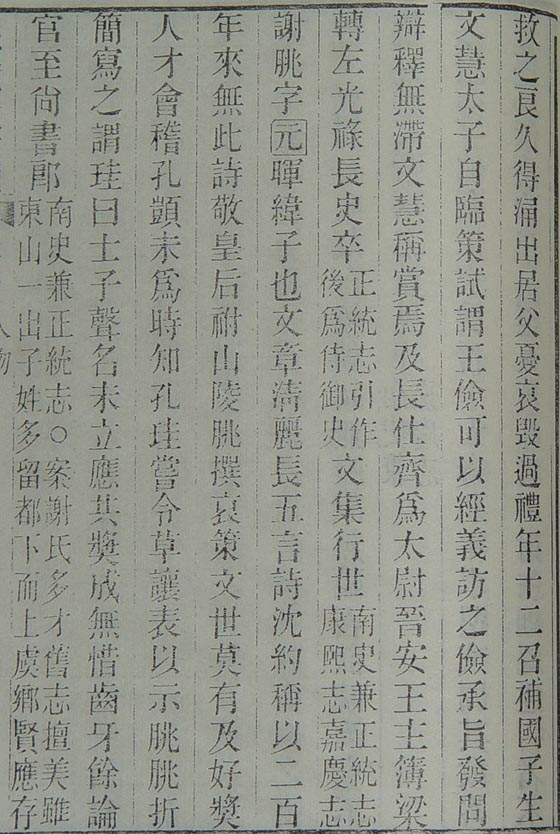 救之良久得涌出居父憂哀毀過禮年十二召補國子生
文慧太子自臨策試謂王儉可以經義訪之儉承旨發問
辯釋無滯文慧稱賞焉及長仕齊爲太尉晉安王主簿梁
轉左光祿長史卒正統志引作後爲侍御史文集行世南史兼正統志康熙志嘉慶志
謝朓字元暉緯子也文章淸麗長五言詩沈約稱以二百
年來無此詩敬皇后祔山陵朓撰哀策文世莫有及好獎
人才會稽孔顗未爲時知孔珪嘗令草讓表以示朓朓折
簡寫之謂珪曰士子聲名未立應共獎成無惜齒牙餘論
官至尙書郎南史兼正統志○案謝氏多才舊志擅美雖東山一出子姓多留都下而上虞鄉賢應存